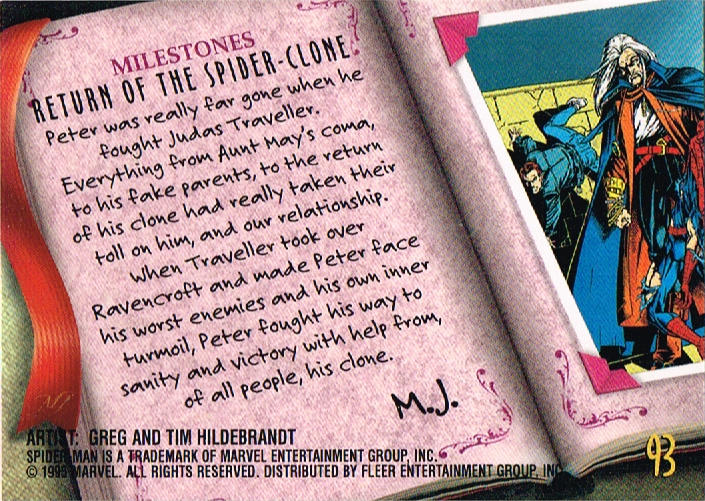 MILESTONES
RETURN OF THE SPIDER-CLONE
Peter was really far gone when he
fought Judas Traveller.
Everything from Aunt May's coma,
to his fake parents, to the return
of his clone had really taken their
toll on him, and our relationship.
When Traveller took over
Ravencroft and made Peter face
his worst enemies and his own inner
turmoil, Peter fought his way to
sanity and victory with help from,
of all people, his clone.
M.J.
ARTIST: GREG AND TIM HILDEBRANDT
SPIDER-MAN IS A TRADEMARK OF MARVEL ENTERTAINMENT GROUP, INC.
© 1995 MARVEL. ALL RIGHTS RESERVED. DISTRIBUTED BY FLEER ENTERTAINMENT GROUP, INC
93